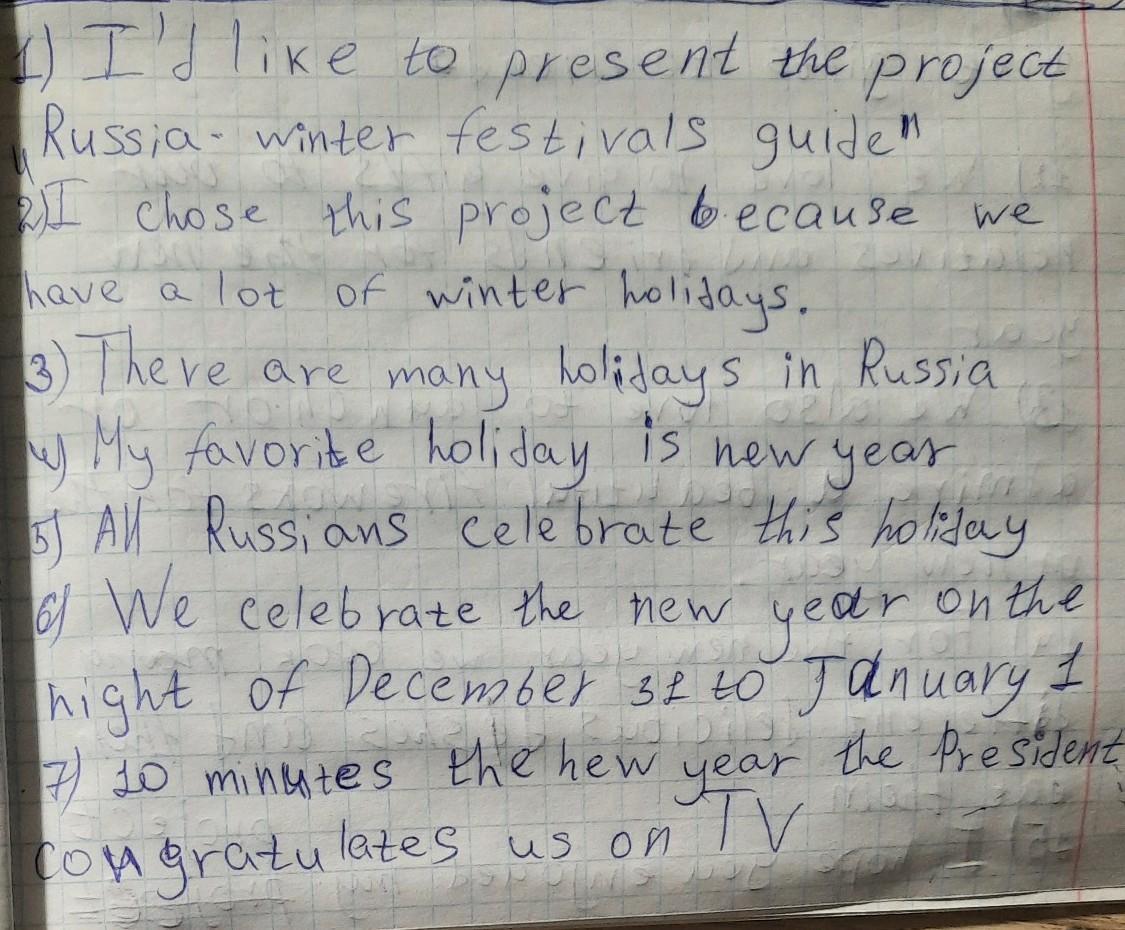 1) I'd like to present the project
„Russia - winter festivals guide"
2) I chose this project because we
have a lot of winter holidays.
3) There are many holidays in Russia
4) My favorite holiday is new year
5) All Russians celebrate this holiday
6) We celebrate the new year on the
night of December 31 to January 1
7) 10 minutes the new year the President
congratulates us on TV